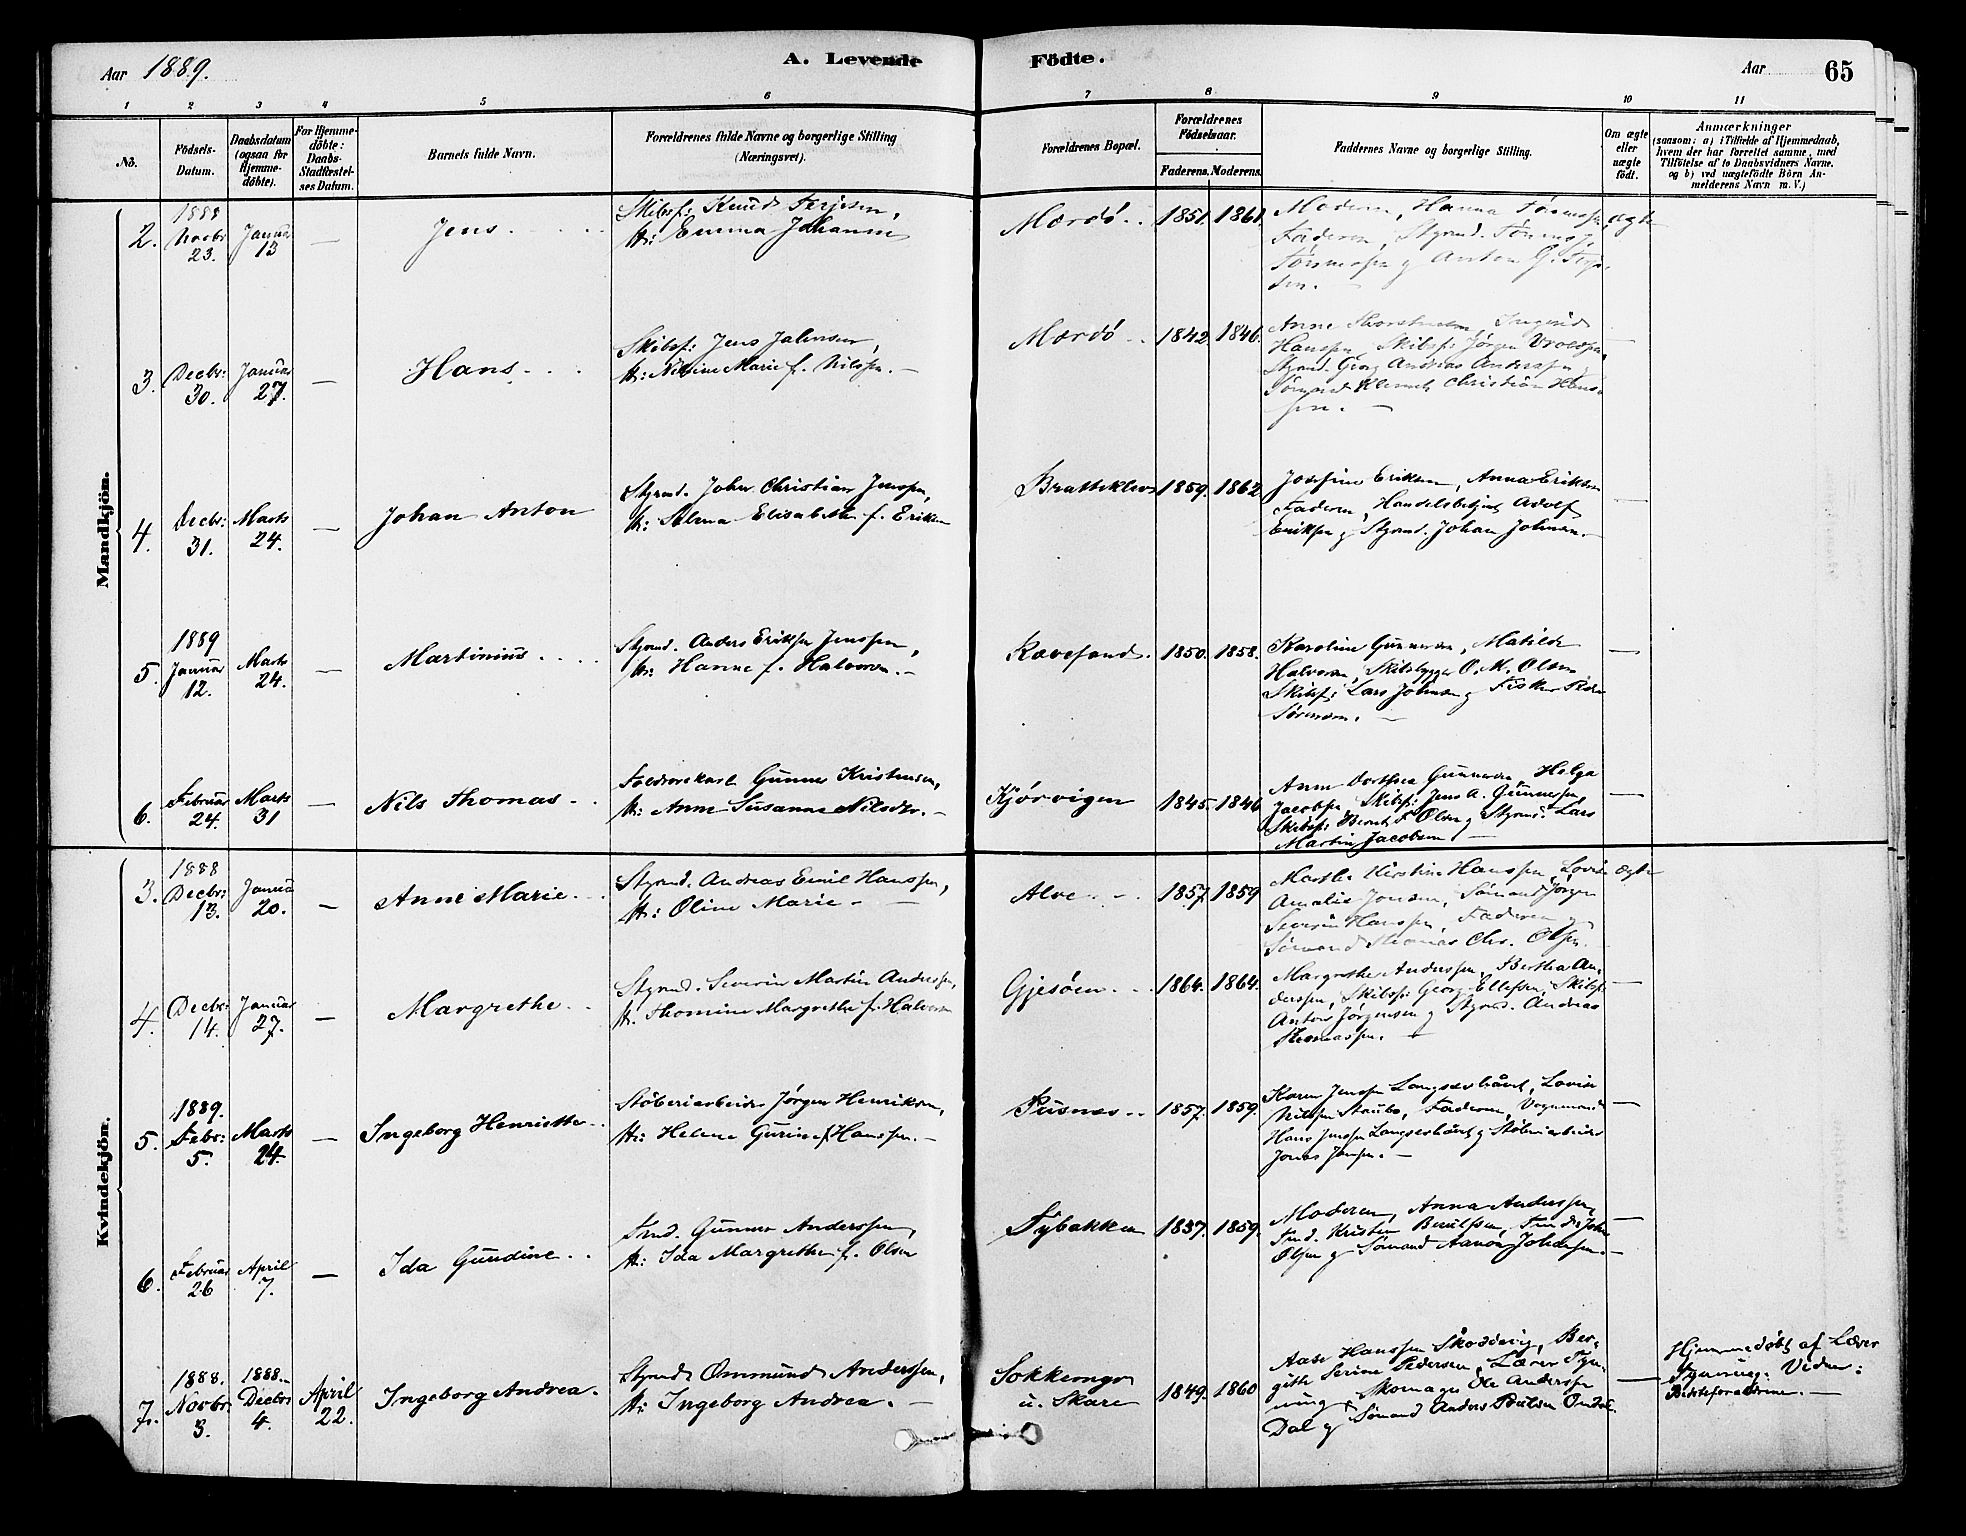 Aar 1889.
A. Levende
Födte.
Aar
65
1 2 3 4 5 6 7 8 9 10 11
No.
Födsels-Datum.
Daabsdatum (ogsaa for Hjemme-döbte).
For Hjemme-döbte: Daabs-Stadfæstel-ses Datum.
Barnets fulde Navn.
Forældrenes fulde Navne og borgerlige Stilling (Næringsvei).
Forældrenes Bopæl.
Forældrenes Födselsaar.
Faderens. Moderens.
Faddernes Navne og borgerlige Stilling.
Om ægte eller uægte födt.
Anmærkninger
(saasom: a) i Tilfælde af Hjemmedaab, hvem der har forrettet samme, med Tilföielse af to Daabsvidners Navne, og b) ved uægtefödte Börn Anmelderens Navn m. V.)
Mandkjön.
2. 1888 Novbr 23. Januar 13 — Jens
Skibsf: Knud Terjesen,
H: Emma Johanne
Mærdö 1851. 1861.
Moderen, Hanna
Faderen, Styrmd.
Anton G.
ægte
3. Decbr: 30. Januar 27. — Hans
Skibsf: Jens Jahnsen,
H: Marie f. Nilssen. —
Mærdö 1842 1846.
Anne
Hanssen, Skibsf: Jörgen
Styrmd. Georg Andreas Anderssen
Christian Hans-
sen. —
4. Decbr: 31. Marts 24. — Johan Anton
Styrmd. John Christian Jenssen,
H: Selma Elisabeth f. Eriksen
Bratteklev 1859. 1862
Josefine Eriksen, Anna Eriksen
Faderen, Handelsbetjent Adolf
Eriksen og Styrmd. Johan Johnsen. —
5. 1889 Januar 12. Marts 24. — Martinius
Styrmd. Anders Eriksen Jenssen,
H: Hanne f. Halvorsen. —
Revesand. 1850. 1858.
Karoline Gunnersen, Matilde
Halvorsen, Skibsbygger O. M. Olsen
Skibsf: Lars Johnsen og Fisker Peder
Sörensen. —
6. Februar 24. Marts 31 — Nils Thomas
Gunner Kristensen,
H: Anne Susanne Nilsdtr. —
Kjörvigen 1845. 1846
Anne Dorthea Gunnersen, Helga
Jacobsen, Skibsf: Jens A. Gunnersen,
Skibsf: Bernt F. Olsen og Styrmd: Lars
Martin Jacobsen —
Kvindekjön.
3. 1888 Decbr: 13. Januar 20. — Anne Marie
Styrmd. Andreas Emil Hanssen,
H: Oline Marie —
Alve 1857. 1859
Marthe Kirstine Hanssen, Lovise
Amalie Jensen, Sömand Jörgen
Severin Hanssen, Faderen og
Sömand Thomas Chr. Olsen.
ægte
4. Decbr: 14. Januar 27. — Margrethe
Styrmd. Severin Martin Anderssen,
H: Thomine Margrethe f. Halvorsen
Gjesöen 1864. 1864.
Margrethe Anderssen, Berthea An-
derssen, Skibsf: Georg Ellefsen, Skibsf
Anton Jörgensen og Styrmd. Andreas
Thomassen. —
5. 1889. Febr: 5. Marts 24. — Ingeborg Henriette
Stöberiarbeider Jörgen Henriksen,
H: Helene Gurine f. Hanssen. —
Pusnes 1857. 1859.
Karen Jenssen Langsæ, Lovise
Nilssen Staubö, Faderen, Vognmand
Hans Jenssen og Stöberiarbeider
Jonas Jensen. —
6. Februar 26 April 7. — Ida Gundine
Tmd. Gunner Anderssen,
H: Ida Margrethe f. Olsen
Sybakken 1857. 1859.
Moderen, Anna Anderssen,
Tmd. Kristen
Olsen og Sömand Aanon Johnsen. —
7. 1888. Novbr: 3. 1888. Decbr: 4. April 22. Ingeborg Andrea.
Styrmd. Ommund Anderssen,
H: Ingeborg Andrea. —
Sokkemyr u. Skare 1849. 1860
Aase Hanssen Skoddevig, Ber-
gitte Serine Pedersen, Lærer
Skomager Ole Anderssen
Dal og Sömand Anders Poulsen
Hjemmedöbt af Lærer
Vidner:
Bedsteforældrene. —